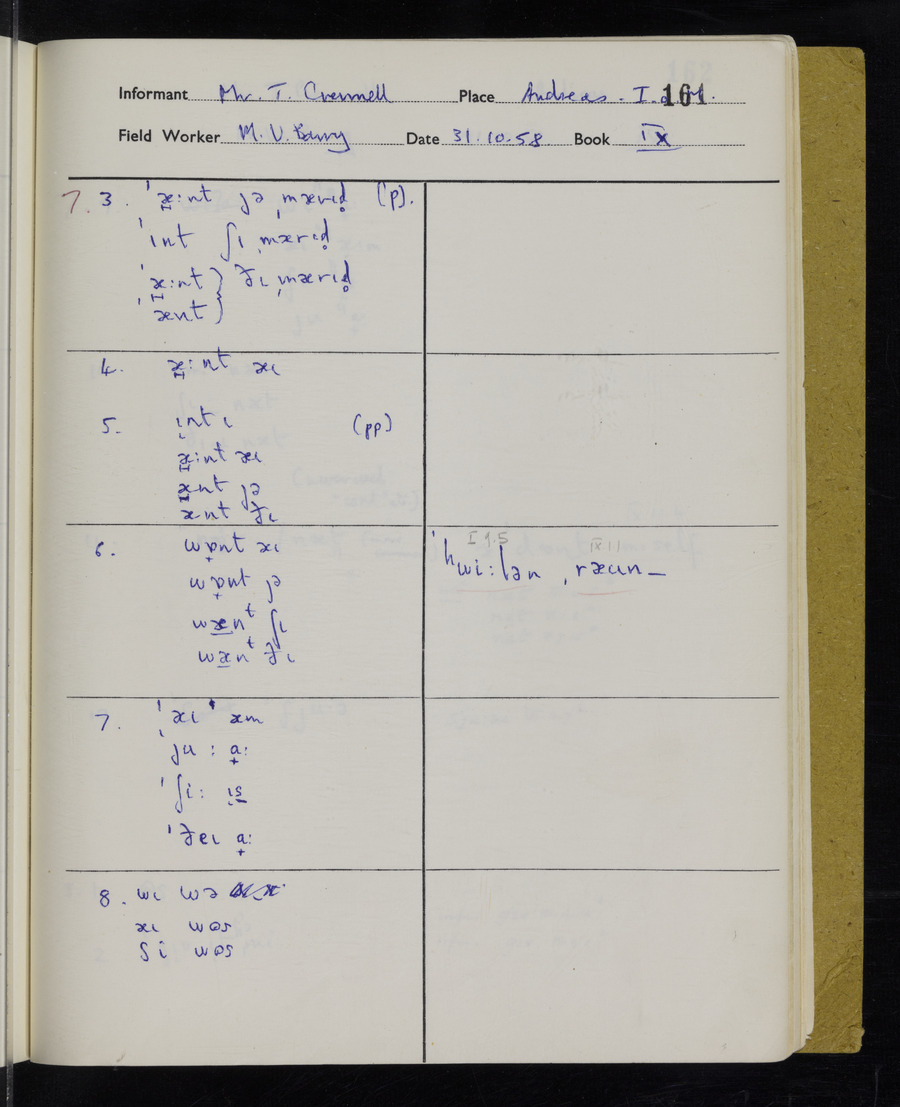 Informant Mr. T. Crennell Place Andreas. I.o.M. 161
Field Worker M. V. Barry Date 31.10.58 Book IX
7. 3. ˈæ̠ːnt jə ˌmærɪd̥ (ˈp).
ˈɪnt ʃɪ ˌmærɪd̥
ˈæ̠ːnt } ðɪ ˌmærɪd̥
ˌænt }
4. æ̠ːnt æɪ
5. ɪ̞nt ɪ (pp)
æ̠ːnt æɪ
æ̠nt jə
ænt ðɪ
6. wɒ̟nt æɪ
wɒ̟nt jə
wæ̠nᵗ ʃɪ
wæ̠nᵗ ðɪ
I 9.5 IX 11
ˈʰwiːlən ˌræun–
7. ˈæɪ ˈæm
ˌjuː a̟ː
ˈʃiː ɪ̞s
ˈðeɪ a̟ː
8. wɪ wə
æɪ wɒs
ʃi wɒs